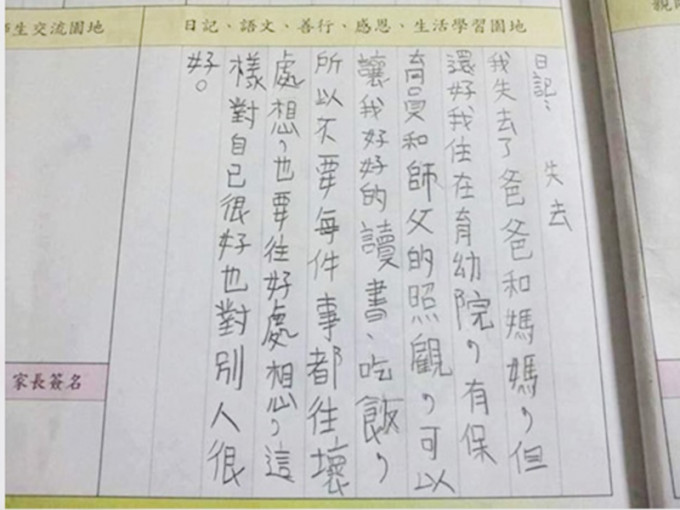 師生交流園地
日記、語文、善行、感恩、生活學習園地
日記: 失去
我失去了爸爸和媽媽，但
還好我住在育幼院，有保
育員和師父的照顧，可以
讓我好好的讀書、吃飯，
所以不要每件事都往壞
處想，也要往好處想，這
樣對自己很好也對別人很
好。
家長簽名